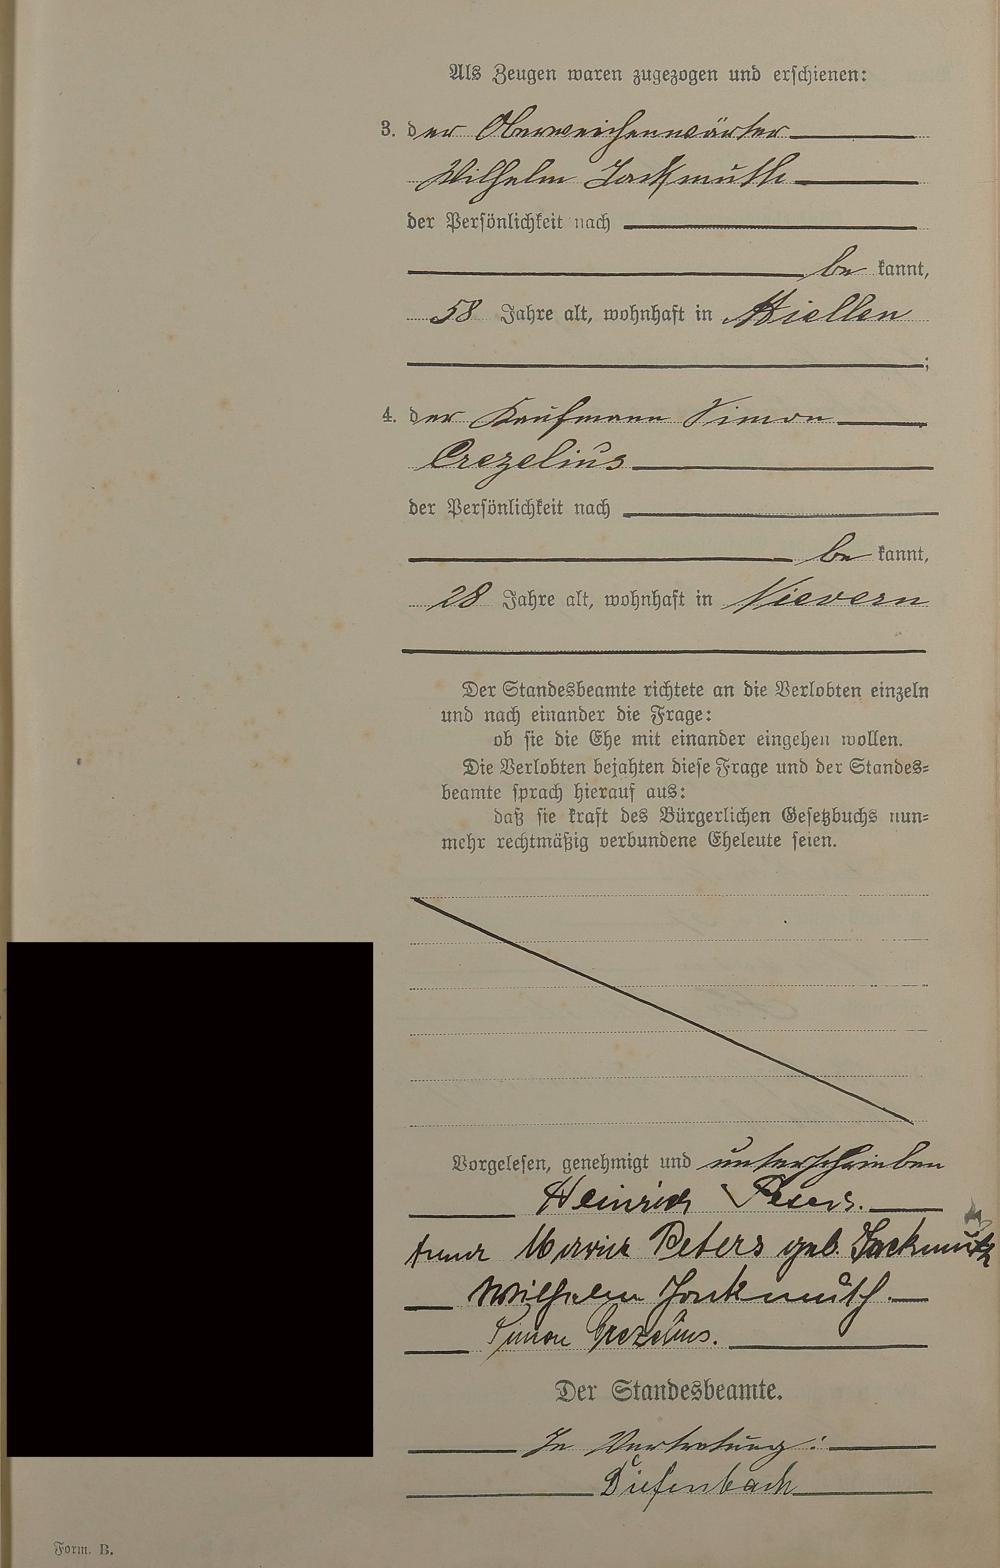 Als Zeugen waren zugezogen und erschienen:
3. der Oberweichenwärter
Wilhelm Jackmuth
der Persönlichkeit nach
be kannt,
58 Jahre alt, wohnhaft in Miellen
;
4. der Kaufmann Simon
Crezelius
der Persönlichkeit nach
be kannt,
28 Jahre alt, wohnhaft in Nievern
Der Standesbeamte richtete an die Verlobten einzeln
und nach einander die Frage:
ob sie die Ehe mit einander eingehen wollen.
Die Verlobten bejahten diese Frage und der Standes=
beamte sprach hierauf aus:
daß sie kraft des Bürgerlichen Gesetzbuchs nun=
mehr rechtmäßig verbundene Eheleute seien.
Vorgelesen, genehmigt und unterschrieben
Heinrich Peters.
Anna Maria Peters geb. Jackmuth
Wilhelm Jackmuth.
Simon Crezelius.
Der Standesbeamte.
In Vertretung:
Diefenbach
Form. B.